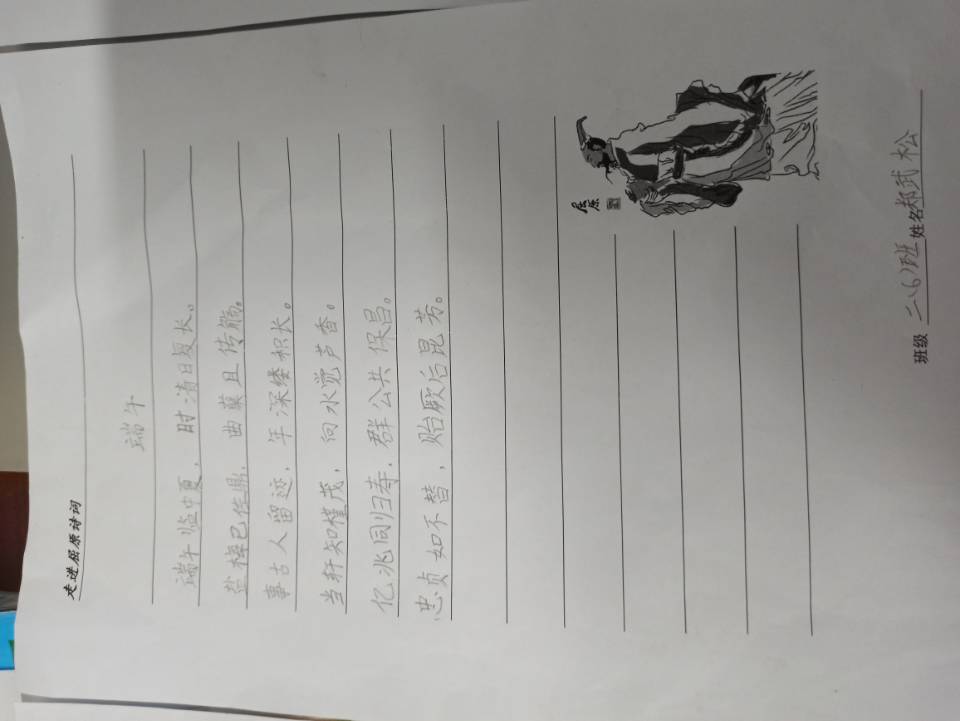 走进屈原诗词
端午
端午临中夏，时清日复长。
盐梅已佐鼎，曲蘖且传觞。
事古人留迹，年深缕积长。
当轩知槿茂，向水觉芦香。
亿兆同归寿，群公共保昌。
忠贞如不替，贻厥后昆芳。
屈原
班级 二八6)班 姓名 郑武松